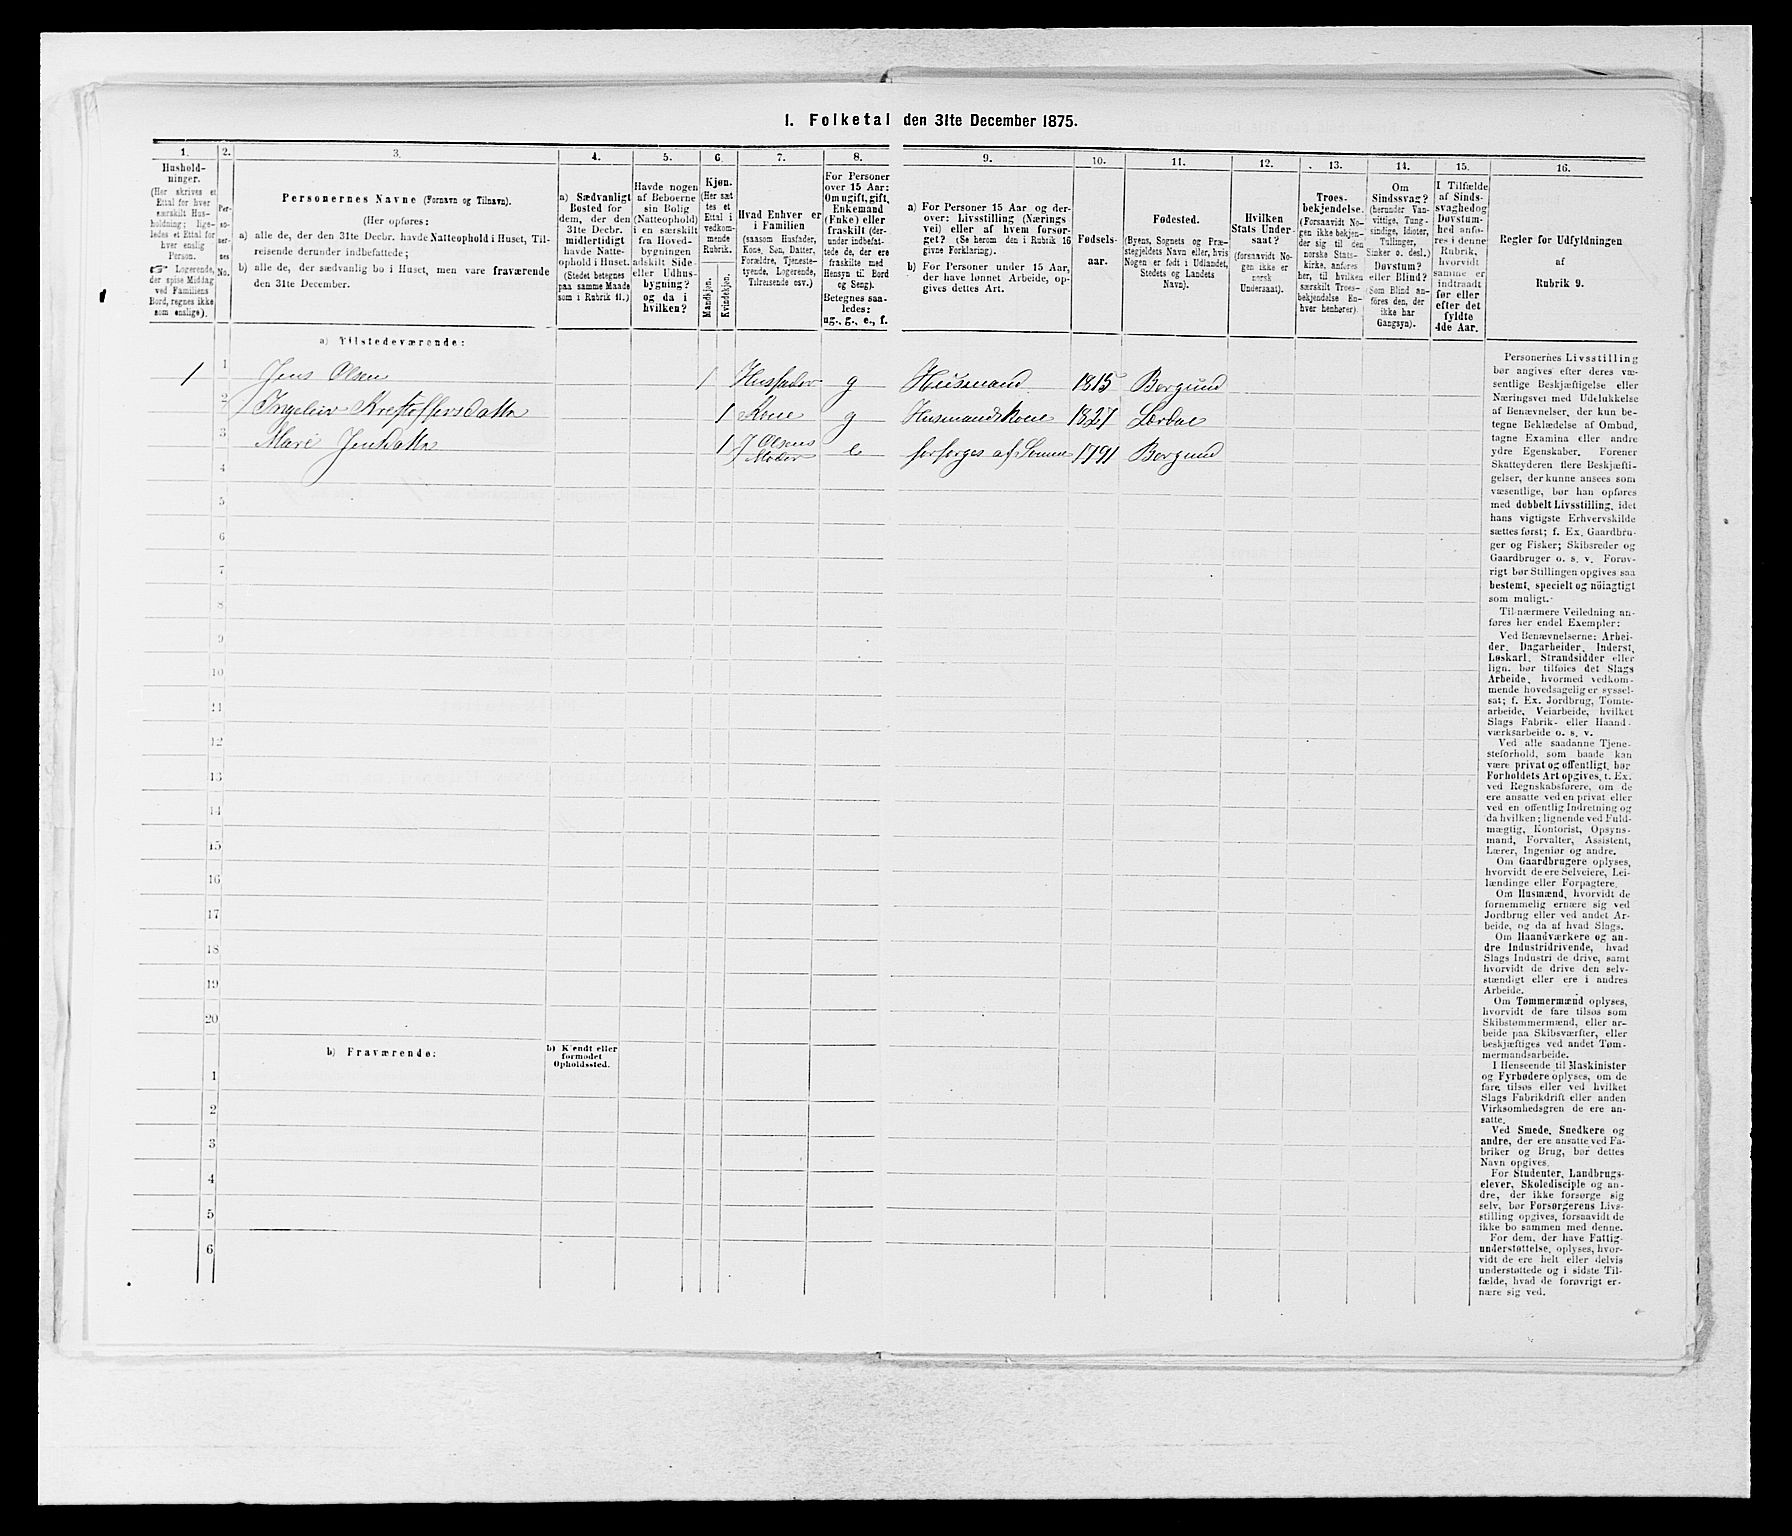 I. Folketal den 31te December 1875.
1.
Hushold-
ninger.
(Her skrives et
Ettal for hver
særskilt Hus-
holdning; lige-
ledes et Ettal for
hver enslig
Person.
☞ Logerende,
der spise Middag
ved Familiens
Bord, regnes ikke
som enslige).
2.
Per-
so-
ner-
nes
No.
3.
Personernes Navne (Fornavn og Tilnavn).
(Her opføres:
a) alle de, der den 31te Decbr. havde Natteophold i Huset, Til-
reisende derunder indbefattede;
b) alle de, der sædvanlig bo i Huset, men vare fraværende
den 31te December.
4.
a) Sædvanligt
Bosted for
dem, der den
31te Decbr.
midlertidigt
havde Natte-
ophold i Huset.
(Stedet betegnes
paa samme Maade
som i Rubrik 11.)
5.
Havde nogen
af Beboerne
sin Bolig
(Natteophold)
i en særskilt
fra Hoved-
bygningen
adskilt Side-
eller Udhus-
bygning?
og da i
hvilken?
6.
Kjøn.
(Her sæt-
tes et
Ettal i
vedkom-
mende
Rubrik.
Mandkjøn.
Kvindekjøn.
7.
Hvad Enhver er
i Familien
(saasom Husfader,
Kone, Søn, Datter,
Forældre, Tjeneste-
tyende, Logerende,
Tilreisende osv.)
8.
For Personer
over 15 Aar:
Om ugift, gift,
Enkemand
(Enke) eller
fraskilt (der-
under indbefat-
tede de, der ere
fraskilte med
Hensyn til Bord
og Seng).
Betegnes saa-
ledes:
ug., g., e., f.
9.
a) For Personer 15 Aar og der-
over: Livsstilling (Nærings-
vei) eller af hvem forsør-
get? (Se herom den i Rubrik 16
givne Forklaring).
b) For Personer under 15 Aar,
der have lønnet Arbeide, op-
gives dettes Art.
10.
Fødsels-
aar.
11.
Fødested.
(Byens, Sognets og Præ-
stegjeldets Navn eller, hvis
Nogen er født i Udlandet,
Stedets og Landets
Navn).
12.
Hvilken
Stats Under-
saat?
(forsaavidt No-
gen ikke er
norsk
Undersaat).
13.
Troes-
bekjendelse.
(Forsaavidt No-
gen ikke bekjen-
der sig til den
norske Stats-
kirke, anføres
her, til hvilken
særskilt Troes-
bekjendelse En-
hver henhører).
14.
Om
Sindssvag?
(herunder Van-
vittige, Tung-
sindige, Idioter,
Tullinger,
Sinker o. desl.)
Døvstum?
eller Blind?
(Som Blind an-
føres den, der
ikke har
Gangsyn).
15.
I Tilfælde
af Sinds-
svaghed og
Døvstum-
hed anfø-
res i denne
Rubrik,
hvorvidt
samme er
indtraadt
før eller
efter det
fyldte
4de Aar.
16.
Regler for Udfyldningen
af
Rubrik 9.
a) Tilstedeværende:
1 1 Jens Olsen 1 Husfader g Huusmand 1815 Borgund
2 Ingeleiv Krestoffersdatter 1 Kone g Husmandskone 1827 Lærdal
3 Mari Jensdatter 1 J Olsens Moder e forsørges af Sønnen 1791 Borgund
4
5
6
7
8
9
10
11
12
13
14
15
16
17
18
19
20
b) Fraværende:
b) Kjendt eller
formodet
Opholdssted.
1
2
3
4
5
6
Personernes Livsstilling
bør angives efter deres væ-
sentlige Beskjæftigelse eller
Næringsvei med Udelukkelse
af Benævnelser, der kun be-
tegne Beklædelse af Ombud,
tagne Examina eller andre
ydre Egenskaber. Forener
Skatteyderen flere Beskjæfti-
gelser, der kunne ansees som
væsentlige, bør han opføres
med dobbelt Livsstilling, idet
hans vigtigste Erhvervskilde
sættes først; f. Ex. Gaardbru-
ger og Fisker; Skibsreder og
Gaardbruger o. s. v. Forøv-
rigt bør Stillingen opgives saa
bestemt, specielt og nöiagtigt
som muligt.
Til nærmere Veiledning an-
føres her endel Exempler:
Ved Benævnelserne: Arbei-
der, Dagarbeider, Inderst,
Løskarl, Strandsidder eller
lign. bør tilføies det Slags
Arbeide, hvormed vedkom-
mende hovedsagelig er syssel-
sat; f. Ex. Jordbrug, Tomte-
arbeide, Veiarbeide, hvilket
Slags Fabrik- eller Haand-
værksarbeide o. s. v.
Ved alle saadanne Tjene-
steforhold, som baade kan
være privat og offentligt, bør
Forholdets Art opgives, t. Ex.
ved Regnskabsførere, om de
ere ansatte ved en privat eller
ved en offentlig Indretning og
da hvilken; lignende ved Fuld-
mægtig, Kontorist, Opsyns-
mand, Forvalter, Assistent,
Lærer, Ingeniør og andre.
Om Gaardbrugere oplyses,
hvorvidt de ere Selveiere, Lei-
lændinge eller Forpagtere.
Om Husmænd, hvorvidt de
fornemmelig ernære sig ved
Jordbrug eller ved andet Ar-
beide, og da af hvad Slags.
Om Haandværkere og an-
dre Industridrivende, hvad
Slags Industri de drive, samt
hvorvidt de drive den selv-
stændigt eller ere i andres
Arbeide.
Om Tømmermænd oplyses,
hvorvidt de fare tilsøs som
Skibstømmermænd, eller ar-
beide paa Skibsværfter, eller
beskjæftiges ved andet Tøm-
mermandsarbeide.
I Henseende til Maskinister
og Fyrbødere oplyses, om de
fare tilsøs eller ved hvilket
Slags Fabrikdrift eller anden
Virksomhedsgren de ere an-
satte.
Ved Smede, Snedkere og
andre, der ere ansatte ved Fa-
briker og Brug, bør dettes
Navn opgives.
For Studenter, Landbrugs-
elever, Skoledisciple og an-
dre, der ikke forsørge sig
selv, bør Forsørgerens Livs-
stilling opgives, forsaavidt de
ikke bo sammen med denne.
For dem, der have Fattig-
understøttelse, oplyses, hvor-
vidt de ere helt eller delvis
understøttede og i sidste Til-
fælde, hvad de forøvrigt er-
nære sig ved.